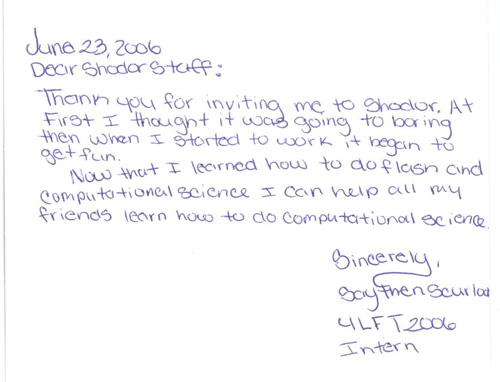 June 23, 2006
Dear Shodor Staff:
Thank you for inviting me to Shodor. At
First I thought it was going to boring
then when I started to work it began to
get fun.
Now that I learned how to do flash and
computational science I can help all my
friends learn how to do computational science.
Sincerely,
4LFT2006
Intern